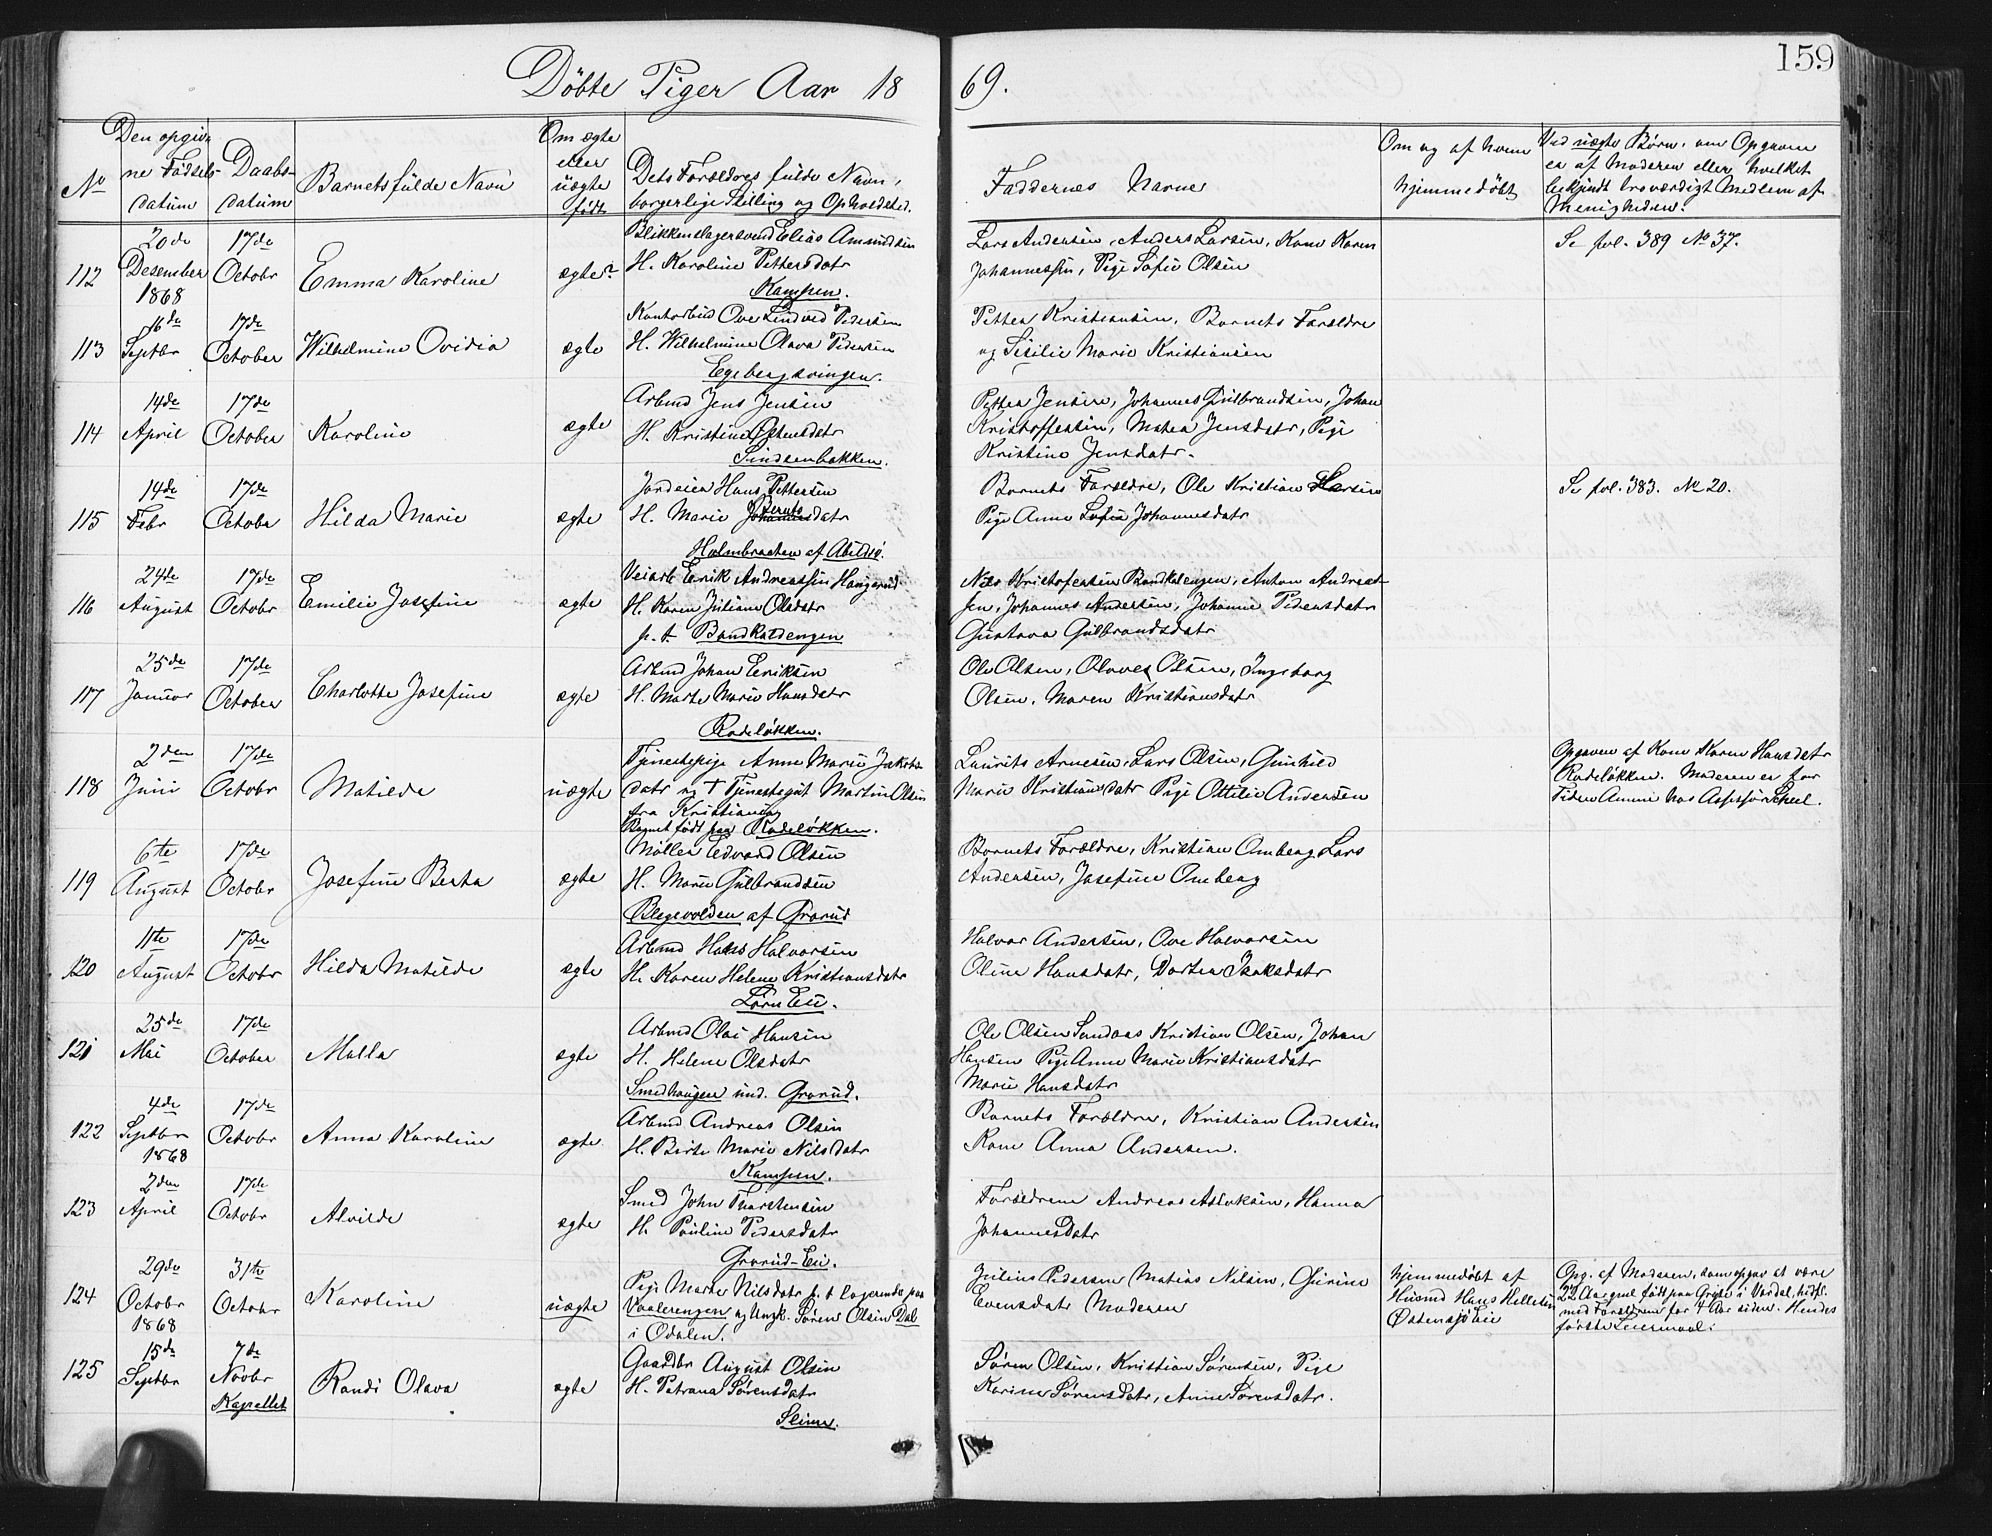 159
Döbte Piger Aar 1869.
No
Den opgivne Fødselsdatum
Daabsdatum
Barnets fulde Navn
Om ægte eller uægte født
Dets Forældres fulde Navn, borgerlige Stilling og Opholdsted.
Faddernes Navne
Om og af hvem hjemmedöbt
Ved uægte Børn, om Opgaven er af Moderen eller hvilket bekjendt troværdigt Medlem af Menigheden.
112
20de Desember 1868
17de Octobr
Emma Karoline
ægte?
Blikkenslagersvend Elias Amundsen
H. Karoline Pettersdatr
Kampen.
Lars Andersen, Anders Larsen, Kone Karen
Johannessen, Pige Sofie Olsen
Se fol. 389 No 37.
113
16de Septbr
17de October
Wilhelmine Ovidia
ægte
Kontorbud Ove Lindved Pedersen
H. Wilhelmine Olava Pedersen
Egebergsvingen.
Pettea Kristiansen, Barnets Forældre
og Sisilie Marie Kristiansen
114
14de April
17de October
Karoline
ægte
Arbmd Jens Jensen
H. Kristine Ostensdatr
Sindsenbakken.
Pettea Jensen, Johannes Gulbrandsen, Johan
Kristoffersen, Matea Jensdatr, Pige
Kristine Jensdatr.
115
14de Febr
17de October
Hilda Marie
ægte
Jordeier Hans Pettersen
H. Marie Berntsdatr
Holmbraaten af Abildsö.
Barnets Forældre, Ole Kristian Larsen
Pige Anne Sofie Johannesdatr
Se fol. 383. No 20.
116
24de August
17de Octobr
Emilie Josefine
ægte
Veiarb Eerik Andreassen Haugerud
H. Karen Juliane Olsdatr
p. t. Bondkaldengen
Nils Kristofersen Bondkalengen, Anton Andreas-
sen, Johannes Andersen, Johanne Pedersdatr
Gustava Gulbrandsdatr
117
25de Januar
17de October
Charlotte Josefine
ægte
Arbmd Johan Eeriksen
H. Marte Marie Hansdatr
Rodeløkken.
Ole Olsen, Olaves Olsen, Ingeborg
Olsen, Maren Kristiansdatr
118
2den Juni
17de Octobr
Matilde
uægte
Tjenestepige Anne Marie Jakobs-
datr og + Tjenestegut Martin Olsen
fra Kristiania
Barnet født paa Rodeløkken.
Laurits Arnesen, Lars Olsen, Gunhild
Marie Kristiansdatr Pige Ottilie Andersen
Opgaven af Kone Karen Hansdatr
Rodeløkken. Moderen er for
Tiden Amme hos Assessor Scheel.
119
6te August
17de Octobr
Josefine Berta
ægte
Møller Edvard Olsen
H. Marie Gulbrandsen
Blegevolden af Grorud
Barnets Forældre, Kristian Omberg Lars
Andersen, Josefine Omberg
120
11te August
17de Octobr
Hilda Matilde
ægte
Arbmd Hans Halvorsen
H. Karen Helene Kristiansdatr
Lørn Eie.
Halvor Andersen, Ove Halvorsen
Oline Hansdatr, Dortea Isaksdatr
121
25de Mai
17de October
Malla
ægte
Arbmd Olai Hansen
H. Helene Olsdatr
Smedhaugen und. Grorud.
Ole Olsen Sundaas Kristian Olsen, Johan
Hansen Pige Anne Marie Kristiansdatr
Marie Hansdatr
122
4de Septbr 1868
17de Octobr
Anna Karoline
ægte
Arbmd Andreas Olsen
H. Birte Marie Nilsdatr
Kampen.
Barnets Forældre, Kristian Andersen
Kone Anna Andersen.
123
2den April
17de Octobr
Alvilde
ægte
Smed John Thorstensen
H. Pauline Pedersdatr
Grorud-Eie.
Forældrene Andreas Aslaksen, Hanna
Johannesdatr
124
29de Octobr 1868
31te Octobr
Karoline
uægte
Pige Marte Nilsdatr p. t. logerende paa
Vaalerengen og Ungk. Søren Olsen Dal
i Odalen.
Julius Pedersen Matias Nilsen, Gurine
Evensdatr Moderen
hjemmedöbt af
Husmd Hans Hellesen
Østensjø Eie
Opg. af Moderen, som opgav at være
22 Aar gml født paa Grije i Vardal, hidfl.
med Forældrene for 4 Aar siden. Hendes
første Leiermaal.
125
15de Septbr
7de Novbr
Kapellet
Randi Olava
ægte
Gaardbr August Olsen
H. Petrana Sørensdatr
Slime.
Søren Olsen, Kristian Sørensen, Pige
Karine Sørensdatr, Anne Sørensdatr.